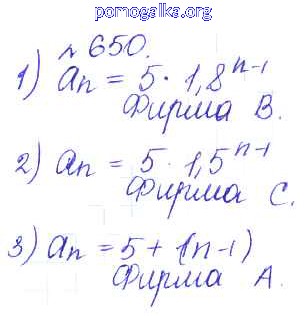 pomogalka.org
№ 650.
1) aₙ = 5 · 1,8ⁿ⁻¹
Фирма В.
2) aₙ = 5 · 1,5ⁿ⁻¹
Фирма С.
3) aₙ = 5 + (n-1)
Фирма А.